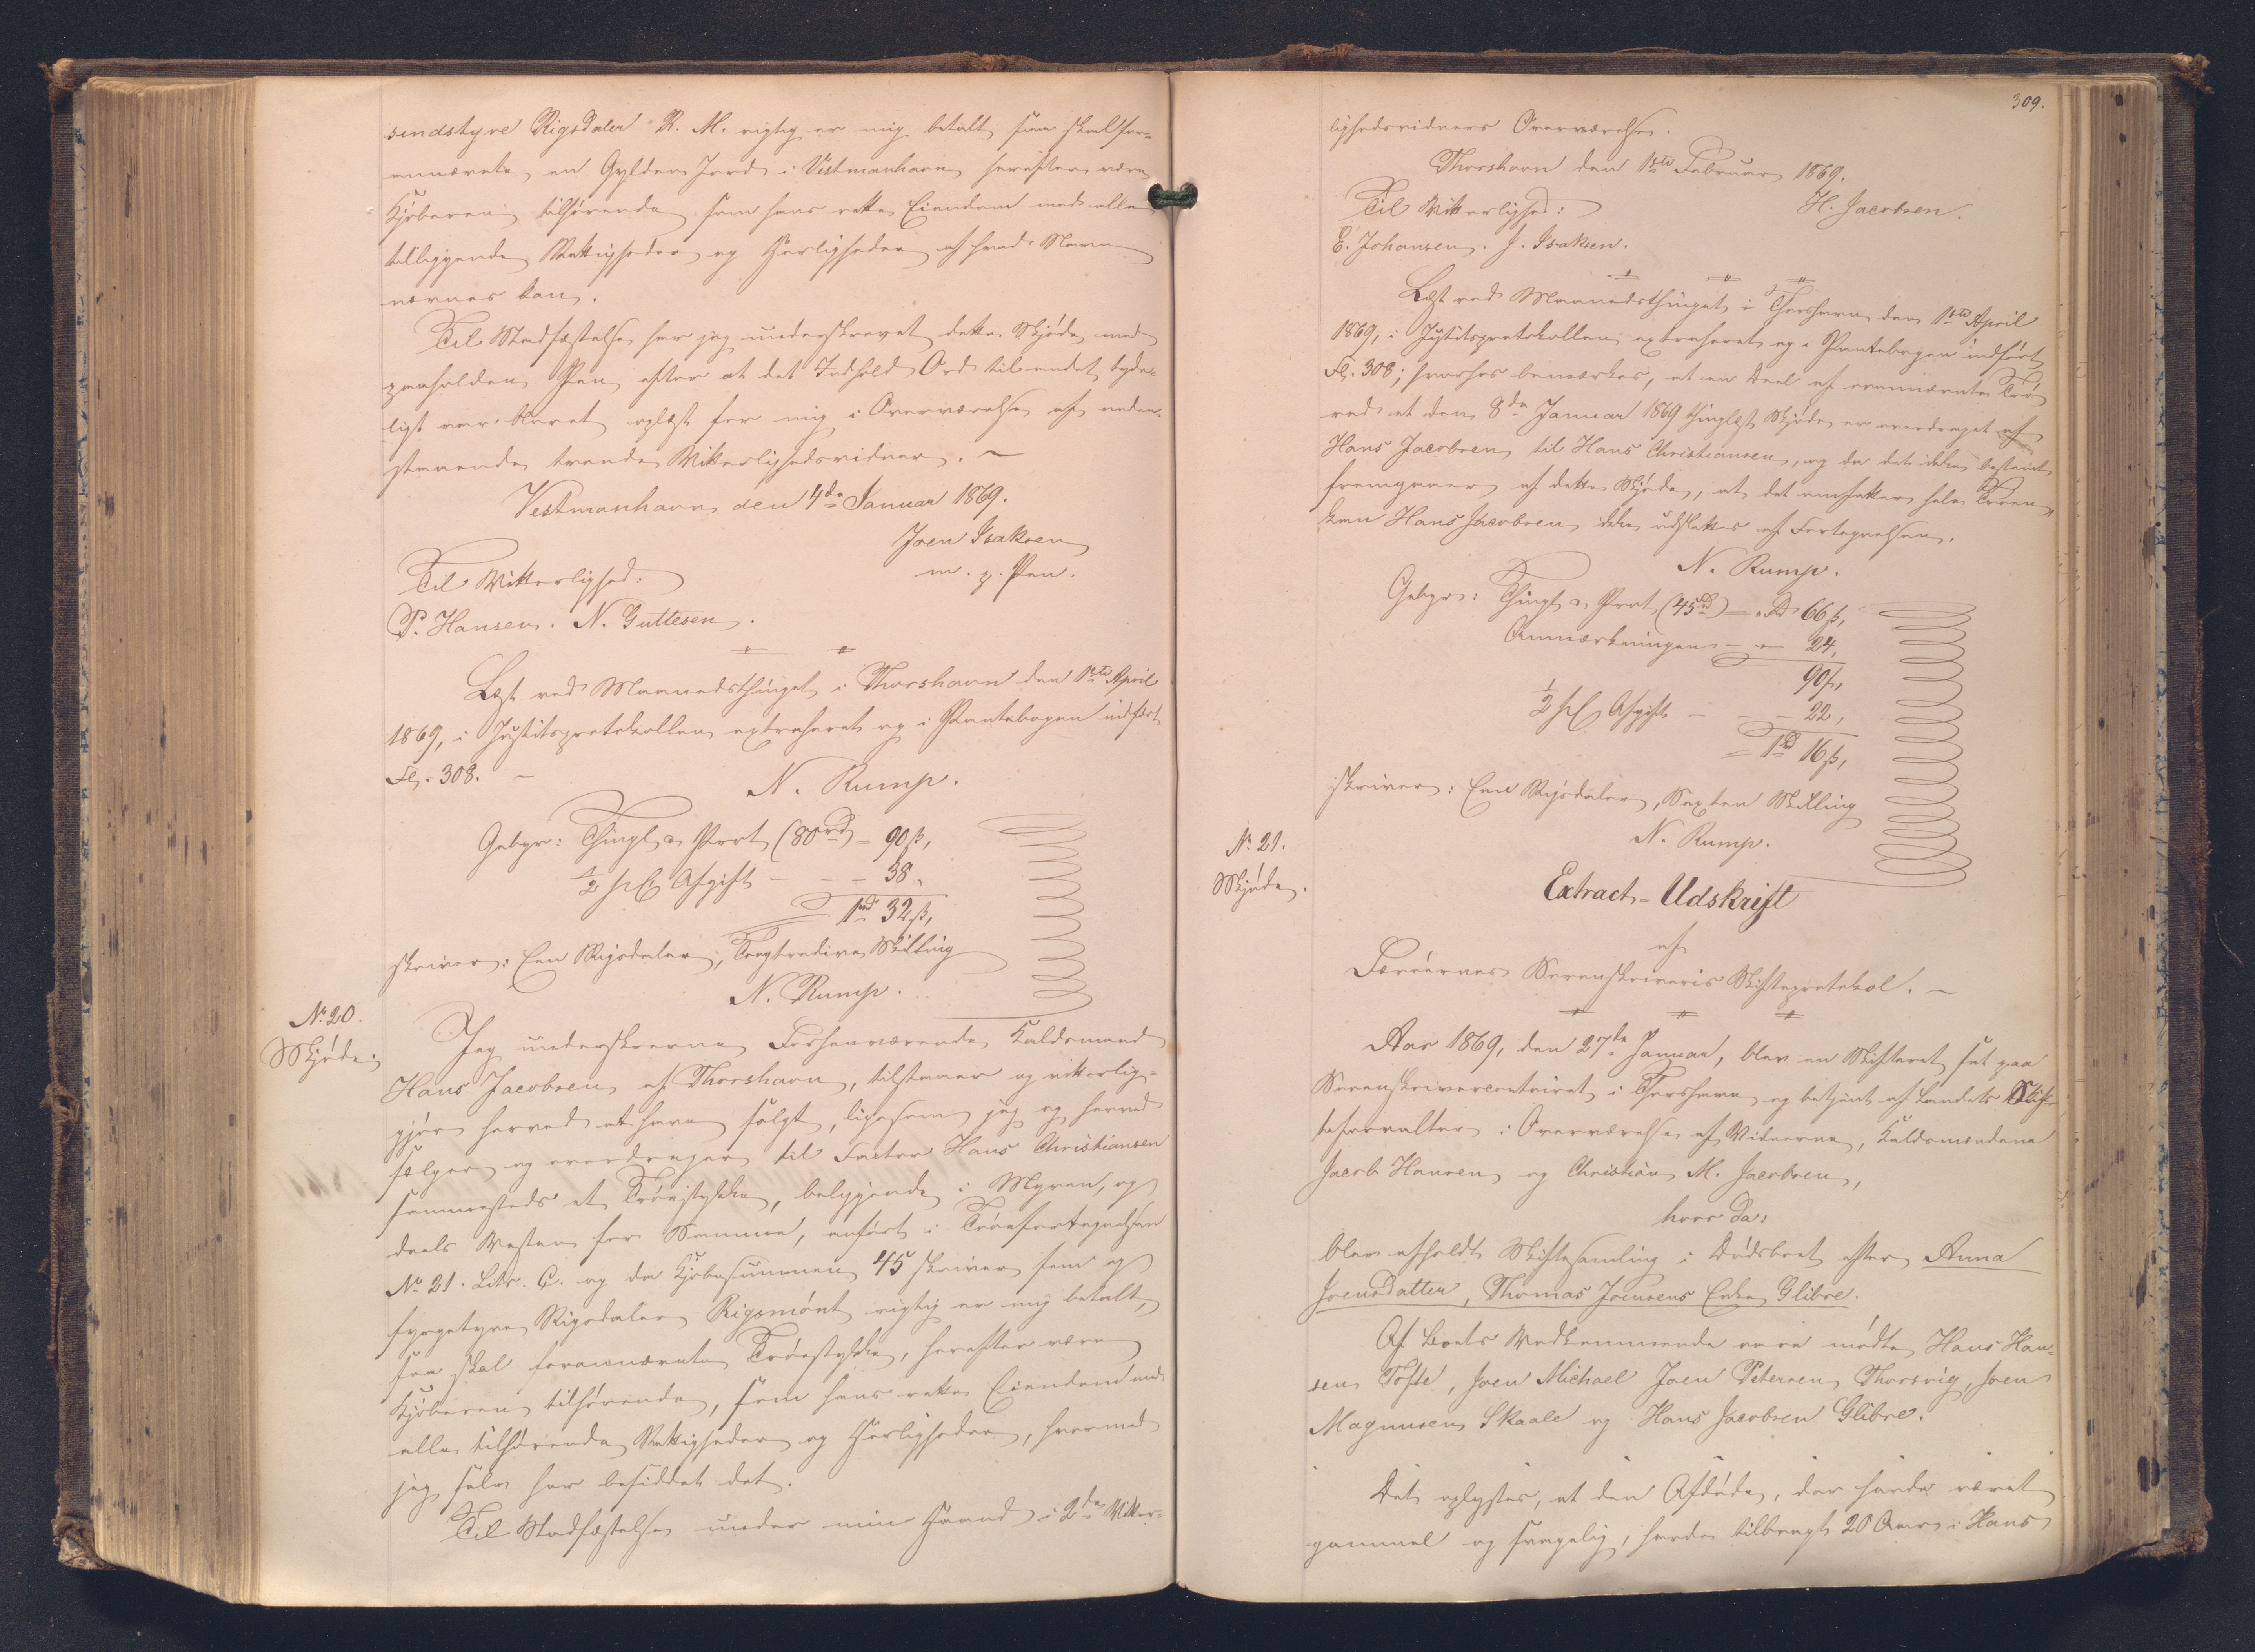 sindstyve Rigsdaler R. M. rigtig er mig betalt saa skal for-
annævnte en Gylden Jord i Vestmanhavn herefter være
Kjøberen tilhørende som hans rette Eiendom med alle
tilliggende Rettigheder og Herligheder af hvad Navn
nævnes kan.
Til Stadfæstelse har jeg underskrevet dette Skjøde med
paaholden Pen efter at det Indhold Ord til andet tyde-
ligt var blevet oplæst for mig i Overværelse af neden-
staaende tvende Vitterlighedsvidner. —
Vestmanhavn den 4de Januar 1869.
Joen Isaksen
m. p. Pen.
Til Vitterlighed:
P. Hansen. N. Guttesen.
Læst ved Maanedsthinget i Thorshavn den 1ste April
1869, i Justitsprotokollen extraheret og i Pantebogen indført
Fol. 308. —
N. Rump.
Gebyr: Thingl. & Prot. (80rd) = 90 ß,
½ pCt Afgift - - - 38 „
1rd 32 ß,
skriver: Een Rigsdaler, Toogtredive Skilling
N. Rump.
No 20.
Skjøde.
Jeg underskrevne Forhenværende Kaldsmand
Hans Jacobsen af Thorshavn, tilstaaer og vitterlig-
gjør herved at have solgt, ligesom jeg og herved
sælger og overdrager til Factor Hans Christiansen
sammesteds et Tróestykke, beliggende i Myren, og
deels Vesten for Samme, anført i Tróefortegnelsen
No 21. Litr. C. og da Kjøbesummen 45 skriver fem og
fyrgetyve Rigsdaler Rigsmønt rigtig er mig betalt,
saa skal forannævnte Tróestykke, herefter være
Kjøberen tilhørende, som hans rette Eiendom med
alle tilhørende Rettigheder og Herligheder, hvormed
jeg selv har besiddet det.
Til Stadfæstelse under min Haand i 2de Vitter-
309.
lighedsvidners Overværelse.
Thorshavn den 1ste Februar 1869.
H. Jacobsen.
Til Vitterlighed:
E. Johansen. J. Isaksen.
Læst ved Maanedsthinget i Thorshavn den 1ste April
1869, i Justitsprotokollen extraheret og i Pantebogen indført
Fol. 308; hvorhos bemærkes, at en Deel af ovennævnte Tró
ved et den 8de Januar 1869 thinglæst Skjøde er overdraget af
Hans Jacobsen til Hans Christiansen, og da det ikke bestemt
fremgaaer af dette Skjøde, at det omfatter hele Tróen,
kan Hans Jacobsen ikke udslettes af Fortegnelsen.
N. Rump.
Gebyr: Thingl. & Prot. (45rd) = „rd 66 ß,
Anmærkningen - „ 24,
90 ß,
½ pCt Afgift - - - 22,
= 1rd 16 ß,
skriver: Een Rigsdaler, Sexten Skilling
N. Rump.
No 21.
Skjøde.
Extract-Udskrift
af
Færøernes Sorenskriveris Skifteprotokol. —
Aar 1869, den 27de Januar, blev en Skifteret sat paa
Sorenskrivercontoiret i Thorshavn og betjent af Landets Skif-
teforvalter i Overværelse af Vidnerne, Kaldsmændene
Jacob Hansen og Christian M. Jacobsen,
hvor da:
blev afholdt Skiftesamling i Dødsboet efter Anna
Joensdatter, Thomas Joensens Enke Glibre.
Af Boets Vedkommende vare mødte Hans Han-
sen Tofte, Joen Michael Joen Petersen Thorsvig, Joen
Magnusen Skaale og Hans Jacobsen Glibre.
Det oplystes, at den Afdøde, der havde været
gammel og svagelig, havde tilbragt 20 Aar i Hans